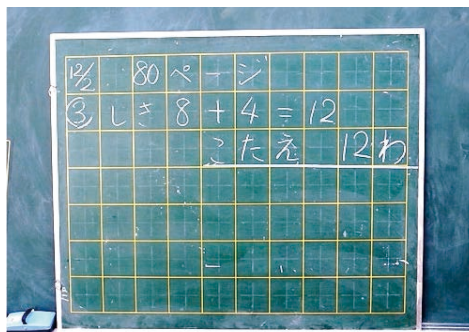 12/2 80ページ
③ しき 8+4=12
こたえ 12わ